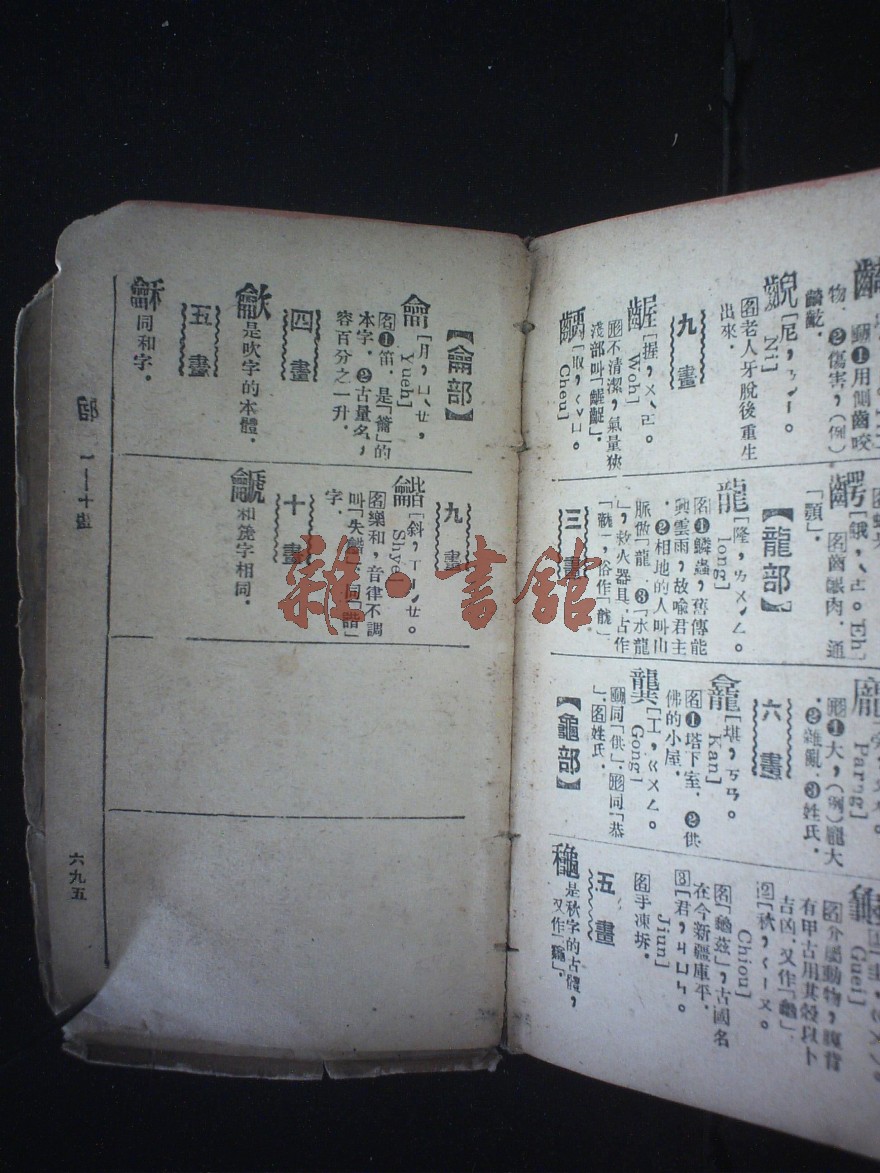 物．❷傷害，(例)
齯[尼，ㄋㄧˊ。
Ni]
名老人牙脫後重生
出來．
九　畫
齷[握，ㄨㄛˋ。
Woh]
形不清潔，氣量狹
淺都叫「齷齪」．
Cheu]
「顎」．
【龍部】
龍[隆，ㄌㄨㄥˊ。
long]
名❶鱗蟲，舊傳能
興雲雨，故喻君主
．❷相地的人叫山
脈做「龍．❸「水龍
」，救火器具．古作
三　畫
龐
❶大，(例)龐大
．❷雜亂．❸姓氏．
六　畫
龕[堪，ㄎㄢ。
Kan]
名❶塔下室．❷供
佛的小屋．
龔[工，ㄍㄨㄥ。
Gong]
動同「供」．形同「恭
」．名姓氏．
【龜部】
龜
Guei]
名介屬動物，腹背
有甲古用其殼以卜
吉凶．又作「龜」．
❷[秋，ㄑㄧㄡ。
Chiou]
名「龜茲」，古國名
在今新疆庫平．
❸[君，ㄐㄩㄣ。
Jiun]
名手凍坼．
五　畫
龝是秋字的古體，
【龠部】
龠[月，ㄩㄝˋ，
Yueh]
名❶笛．是「籥」的
本字．❷古量名，
容百分之一升．
四　畫
龡是吹字的本體．
五　畫
龢同和字．
九　畫
龤[斜，ㄒㄧㄝˊ。
名樂和，音律不調
叫「失龤」．同「諧」
字．
十　畫
龥和篪字相同．
六九五
雜·書館